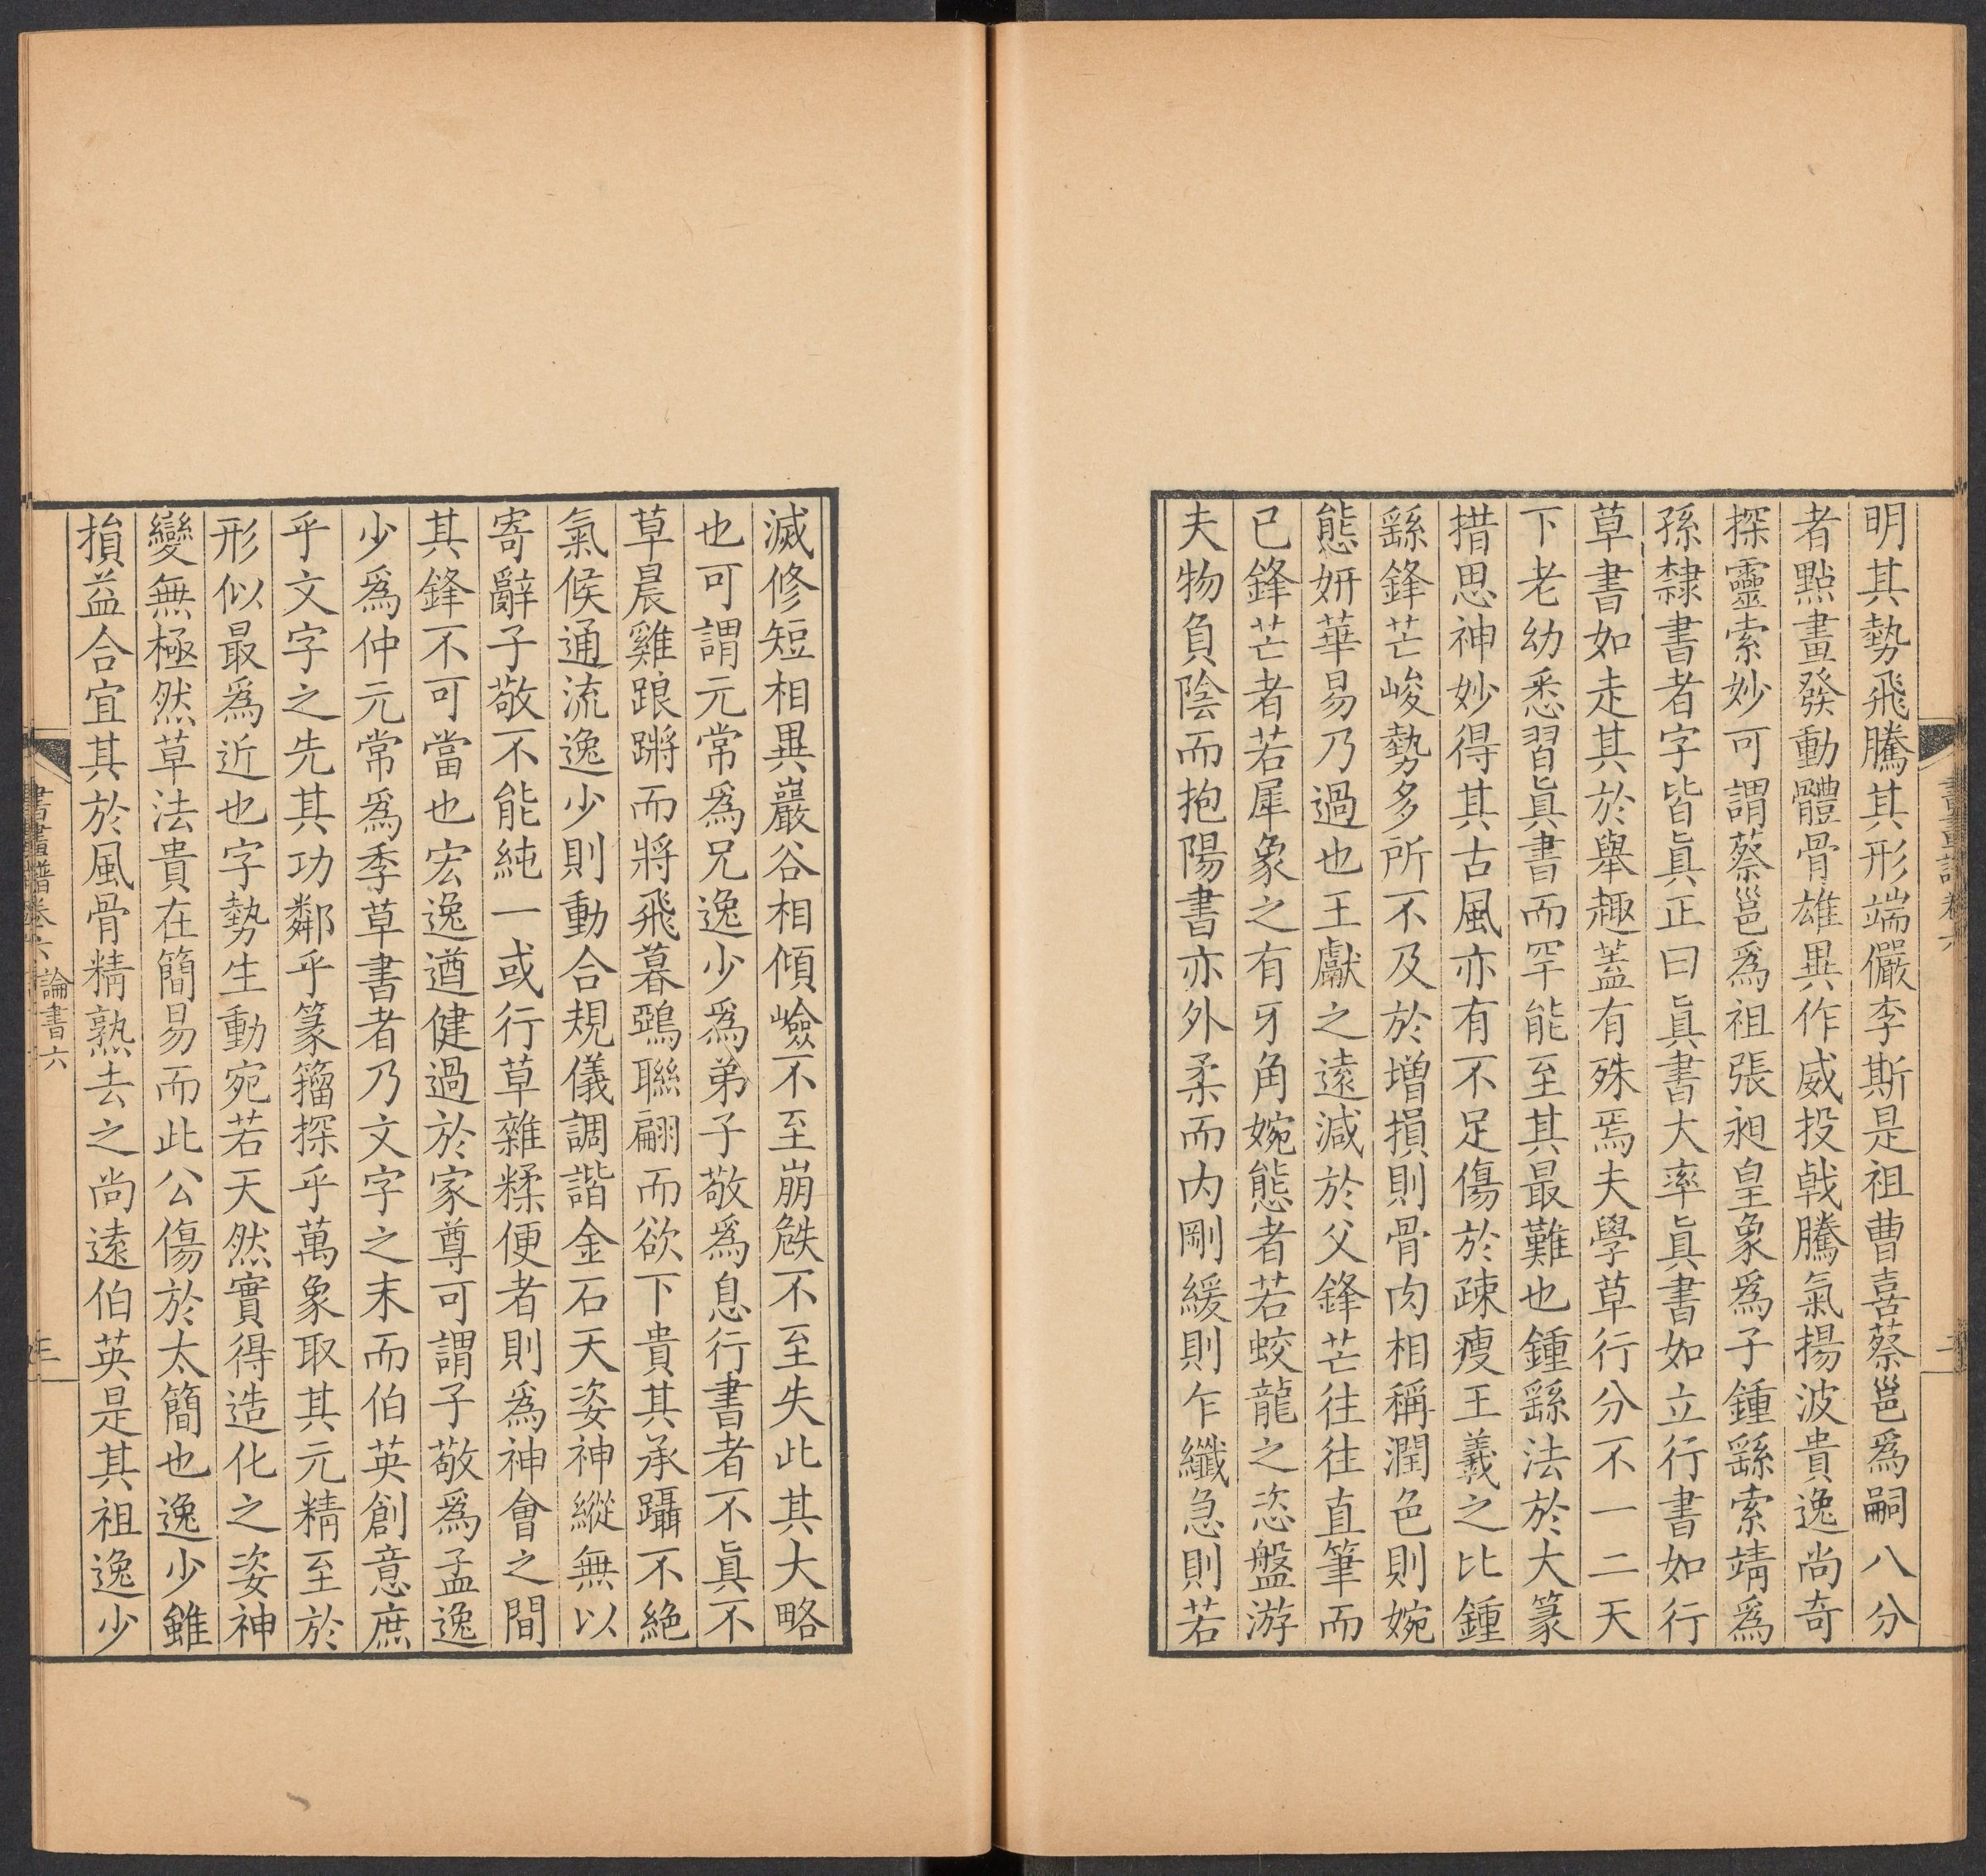 明其勢飛騰其形端儼李斯是祖曹喜蔡邕爲嗣八分
者點畫發動體骨雄異作威投戟騰氣揚波貴逸尚奇
探靈索妙可謂蔡邕爲祖張昶皇象爲子鍾繇索靖爲
孫隸書者字皆眞正曰眞書大率眞書如立行書如行
草書如走其於舉趣蓋有殊焉夫學草行分不一二天
下老幼悉習眞書而罕能至其最難也鍾繇法於大篆
措思神妙得其古風亦有不足傷於疎瘦王羲之比鍾
繇鋒芒峻勢多所不及於增損則骨肉相稱潤色則婉
態妍華易乃過也王獻之遠減於父鋒芒往往直筆而
已鋒芒者若犀象之有牙角婉態者若蛟龍之恣盤游
夫物負陰而抱陽書亦外柔而內剛緩則乍纖急則若
書畫譜卷六
二
滅修短相異巖谷相傾嶮不至崩危不至失此其大略
也可謂元常爲兄逸少爲弟子敬爲息行書者不眞不
草晨雞踉蹡而將飛暮鵶聯翩而欲下貴其承躡不絕
氣候通流逸少則動合規儀調諧金石天姿神縱無以
寄辭子敬不能純一或行草雜糅便者則爲神會之間
其鋒不可當也宏逸遒健過於家尊可謂子敬爲孟逸
少爲仲元常爲季草書者乃文字之末而伯英創意庶
乎文字之先其功鄰乎篆籀探乎萬象取其元精至於
形似最爲近也字勢生動宛若天然實得造化之姿神
變無極然草法貴在簡易而此公傷於太簡也逸少雖
損益合宜其於風骨精熟去之尚遠伯英是其祖逸少
書畫譜卷六 論書六
三